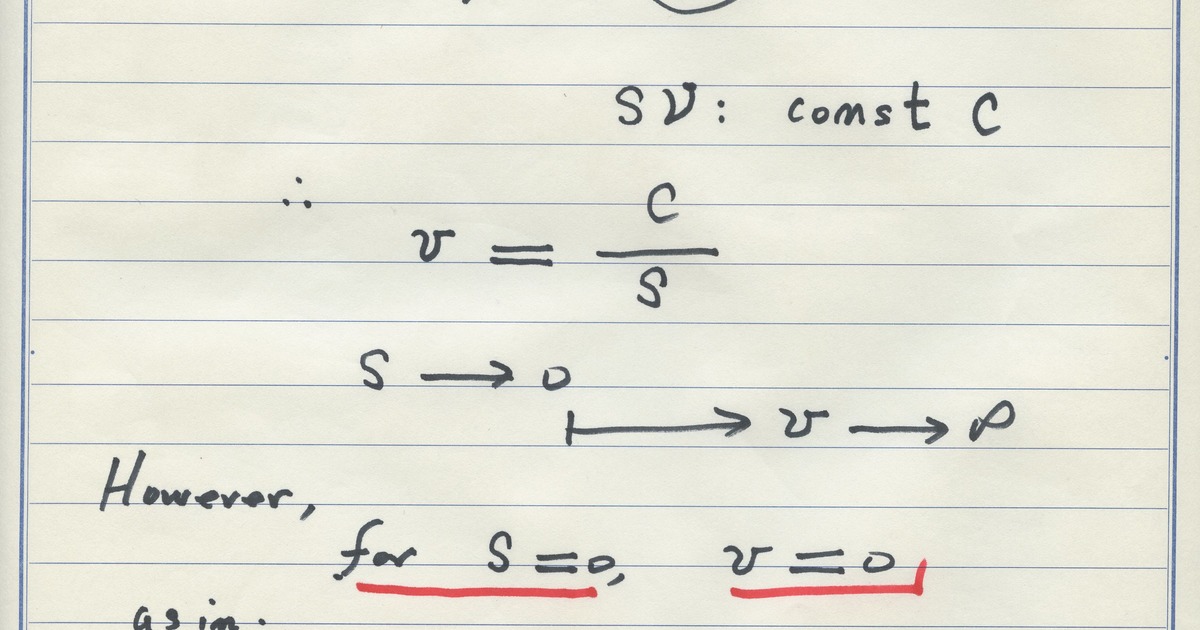 SV: const C
∴
v = C / S
S → 0
↦ v → ∞
However,
for S = 0, v = 0
as in.